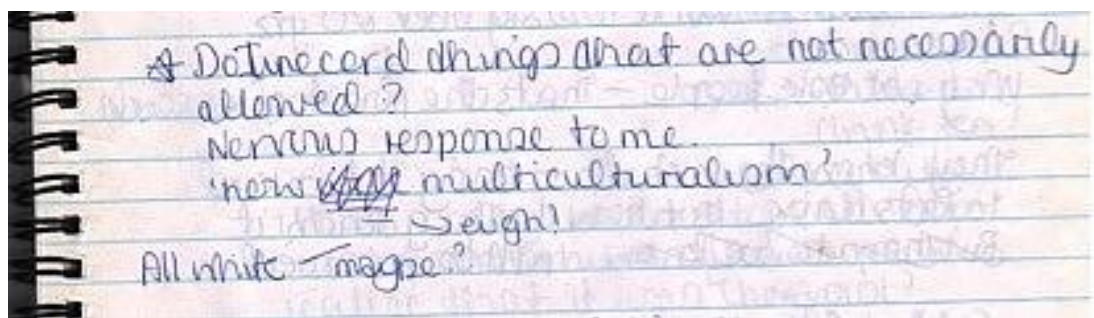 * Do I record things that are not necessarily
allowed?
Nervous response to me.
'new multiculturalism'
↳ eugh!
All white – magpie?